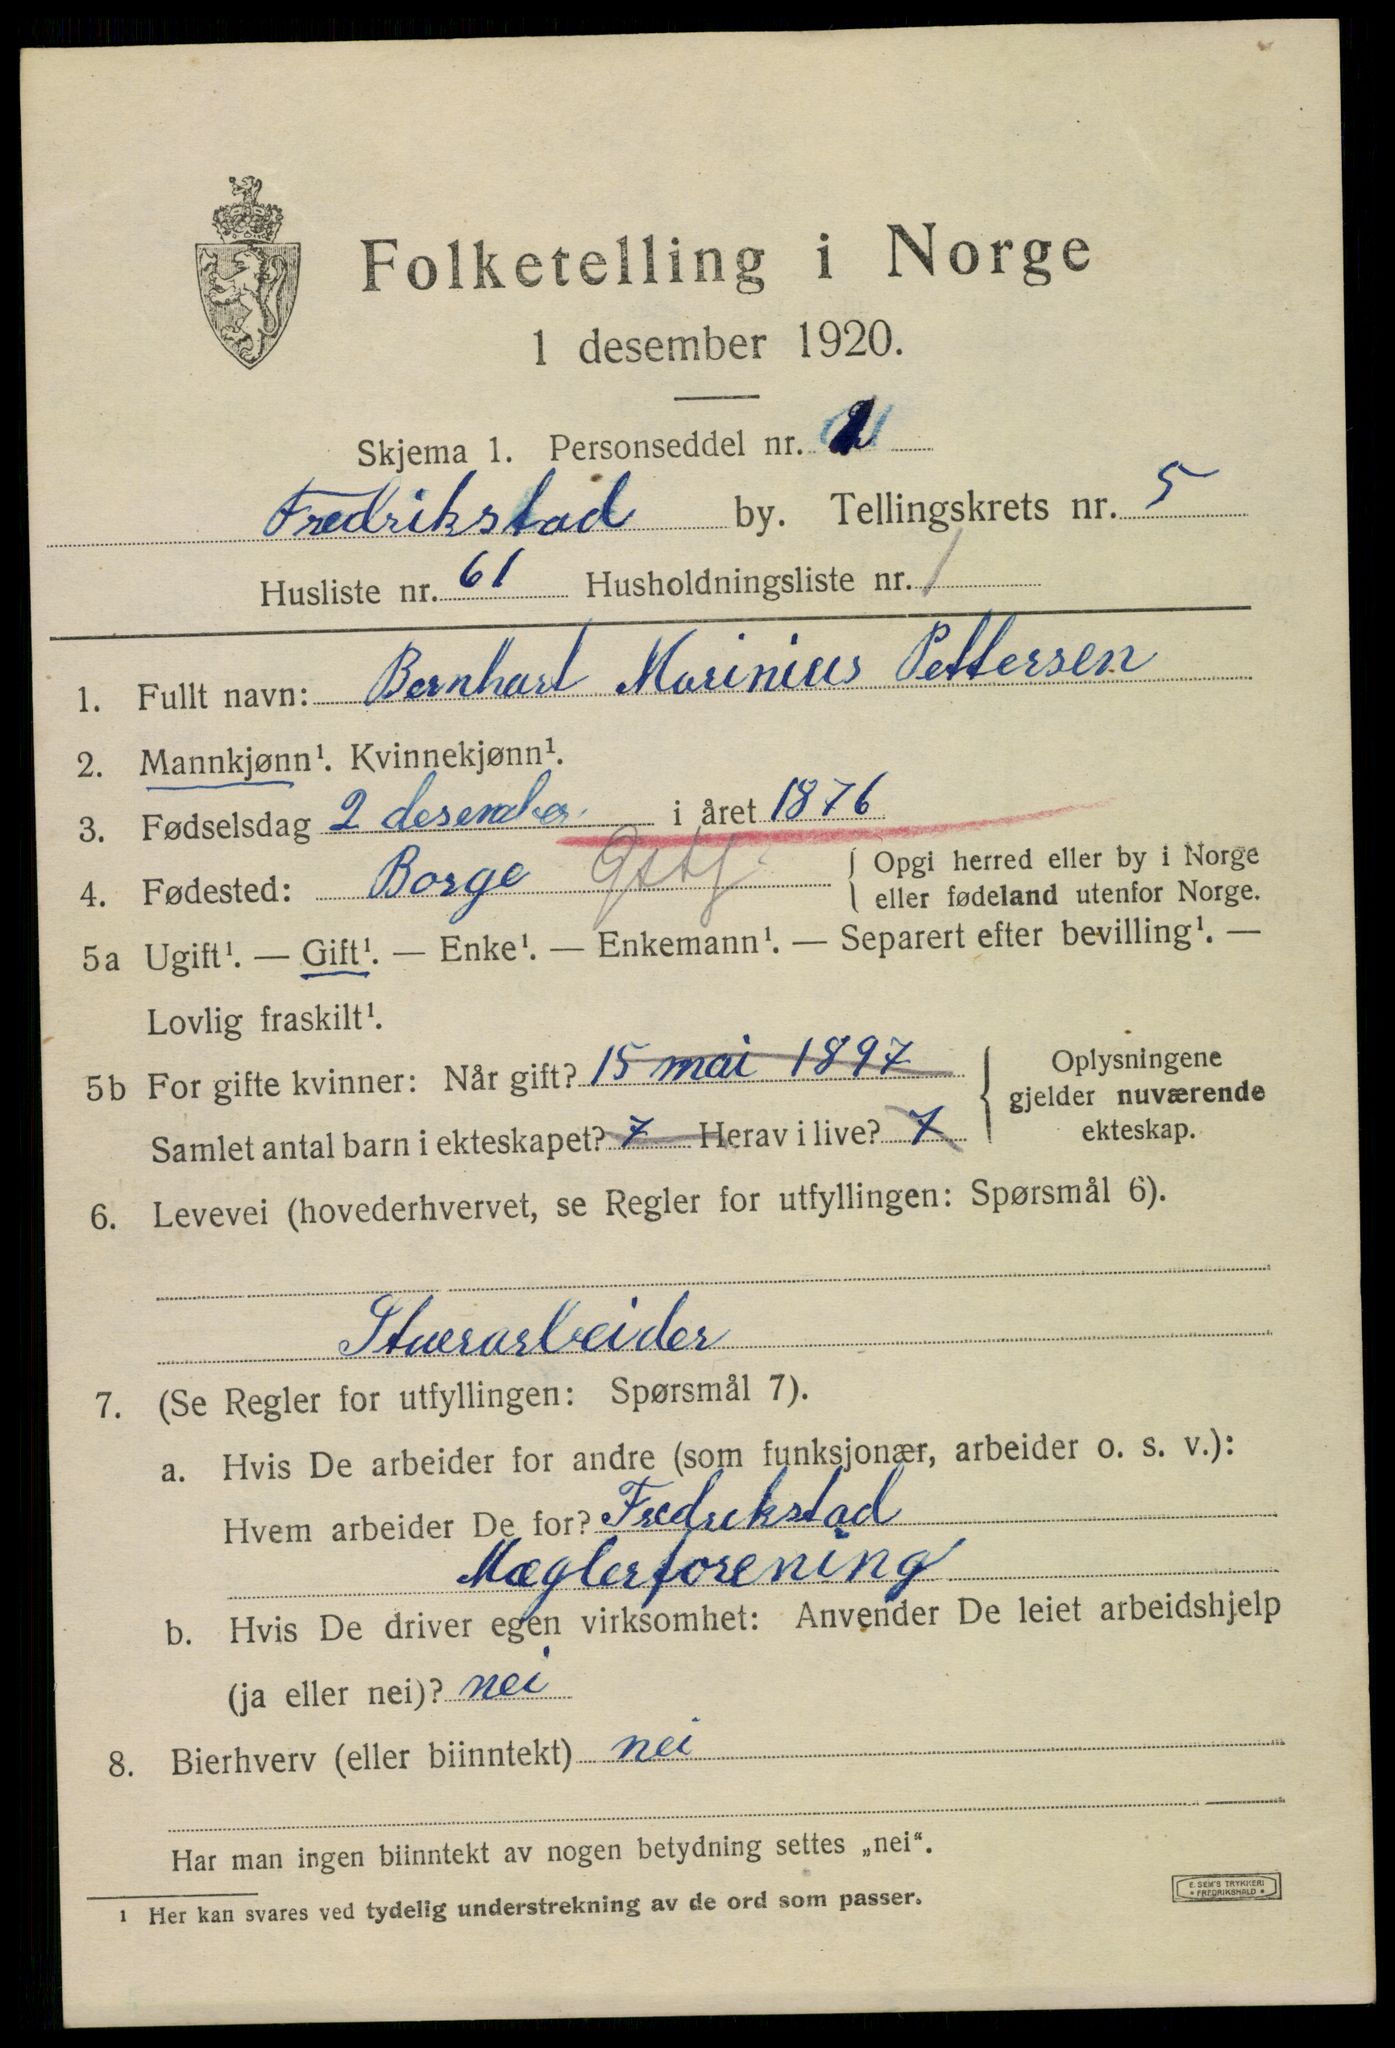 Folketelling i Norge
1 desember 1920.
Skjema 1. Personseddel nr.
Fredrikstad by. Tellingskrets nr. 5
Husliste nr. 61 Husholdningsliste nr. 1
1. Fullt navn: Bernhart Marinius Pettersen
2. Mannkjønn¹. Kvinnekjønn¹.
3. Fødselsdag 2 desember i året 1876
4. Fødested: Borge { Opgi herred eller by i Norge
eller fødeland utenfor Norge.
5a Ugift¹. — Gift¹. — Enke¹. — Enkemann¹. — Separert efter bevilling¹. —
Lovlig fraskilt¹.
5b For gifte kvinner: Når gift? 15 mai 1897
Samlet antal barn i ekteskapet? 7 Herav i live? 7
{ Oplysningene
gjelder nuværende
ekteskap.
6. Levevei (hovederhvervet, se Regler for utfyllingen: Spørsmål 6).
Stuerarbeider
7. (Se Regler for utfyllingen: Spørsmål 7).
a. Hvis De arbeider for andre (som funksjonær, arbeider o. s. v.):
Hvem arbeider De for? Fredrikstad
Mæglerforening
b. Hvis De driver egen virksomhet: Anvender De leiet arbeidshjelp
(ja eller nei)? nei
8. Bierhverv (eller biinntekt) nei
Har man ingen biinntekt av nogen betydning settes „nei“.
1 Her kan svares ved tydelig understrekning av de ord som passer.
E. SEM'S TRYKKERI
• FREDRIKSHALD •